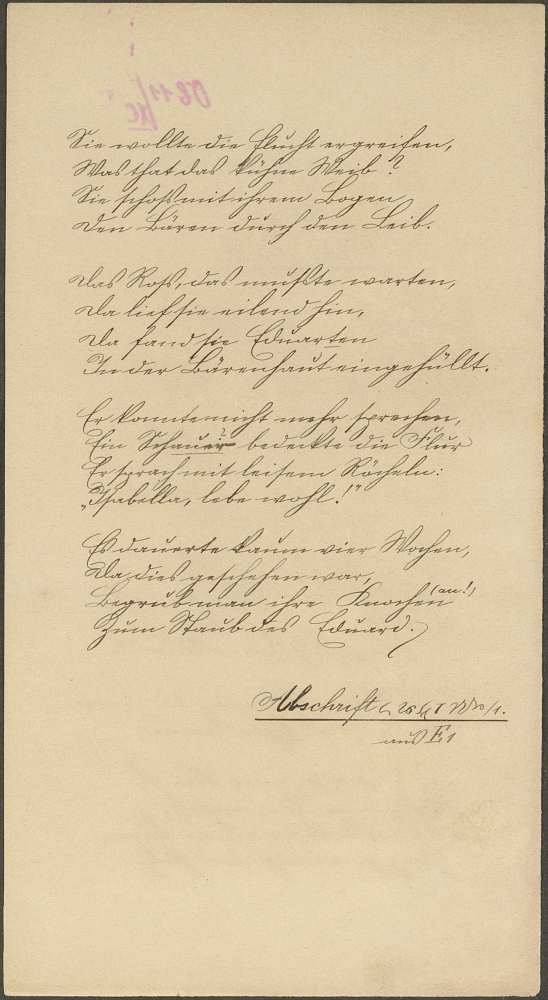 Sie wollte die Flucht ergreifen,
Was that das kühne Weib?
Sie schoß mit ihrem Bogen
Den Bären durch den Leib.
Das Roß, das mußte warten,
Da lief sie eilend hin,
Da fand sie Eduarten
In der Bärenhaut eingehüllt.
Er konnte nicht mehr sprechen,
Ein Schauer? bedeckte die Flur
Er sprach mit leisem Röcheln:
„Isabella, lebe wohl!"
Es dauerte kaum vier Wochen,
Da dies geschehen war,
Begrub man ihre Knochen (an!)
Zum Staub des Eduard.
Abschrift
aus E1